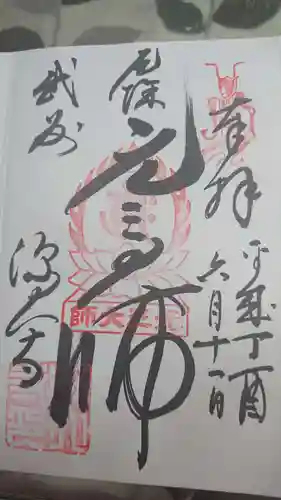 奉拝
平成丁酉
六月十一日
厄除
元三大師
元三大師
武蔵
深大寺